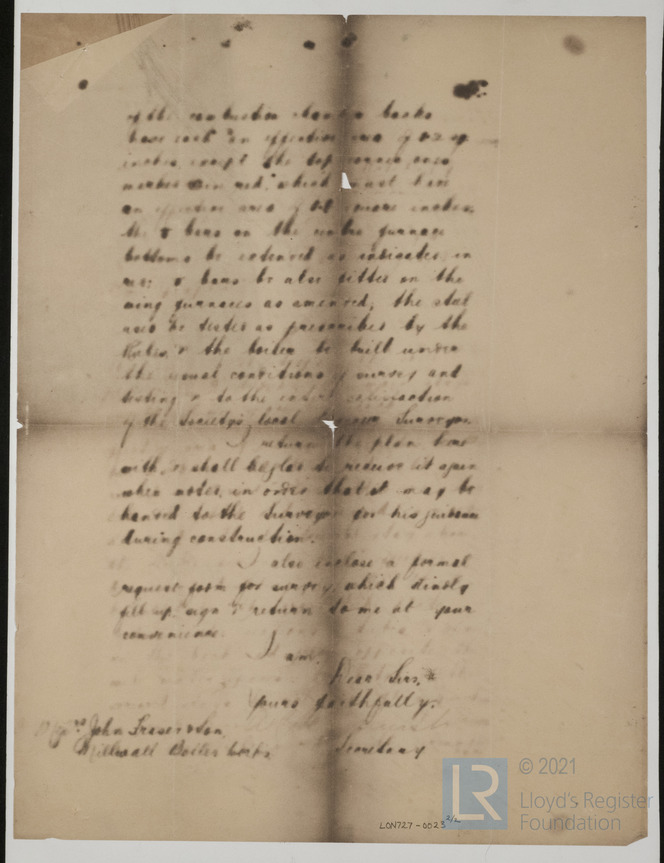 of the combustion chamber backs
have each an effective area of
inches, except the top corner ones
marked in red, which must have
an effective area of square inches,
the bars on the centre furnace
bottoms be extended as indicated in
red: & bars be also fitted on the
wing furnaces as amended, the steel
used be tested as prescribed by the
Rules, & the boiler be built under
the usual conditions of survey and
testing & to the entire satisfaction
of the Society's local Surveyor
I return the plan here
with, & shall be glad to receive it again
when noted, in order that it may be
handed to the Surveyor for his guidance
during construction.
I also enclose a formal
request form for survey, which kindly
fill up, sign & return to me at your
convenience.
I am,
Dear Sirs,
yours faithfully,
Secretary
Messrs John Fraser & Son,
Millwall Boiler Works
LON727-0023 2/2
LR
© 2021
Lloyd's Register
Foundation